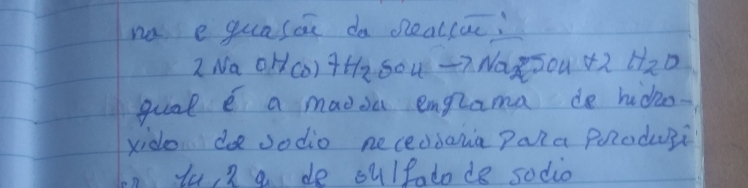 na equasão da reação:
2 Na OH(s) + H2SO4 → Na2SO4 + 2 H2O
qual é a massa em grama de hidro-
xido de sodio necessaria para produzi
14,2 g de sulfato de sodio